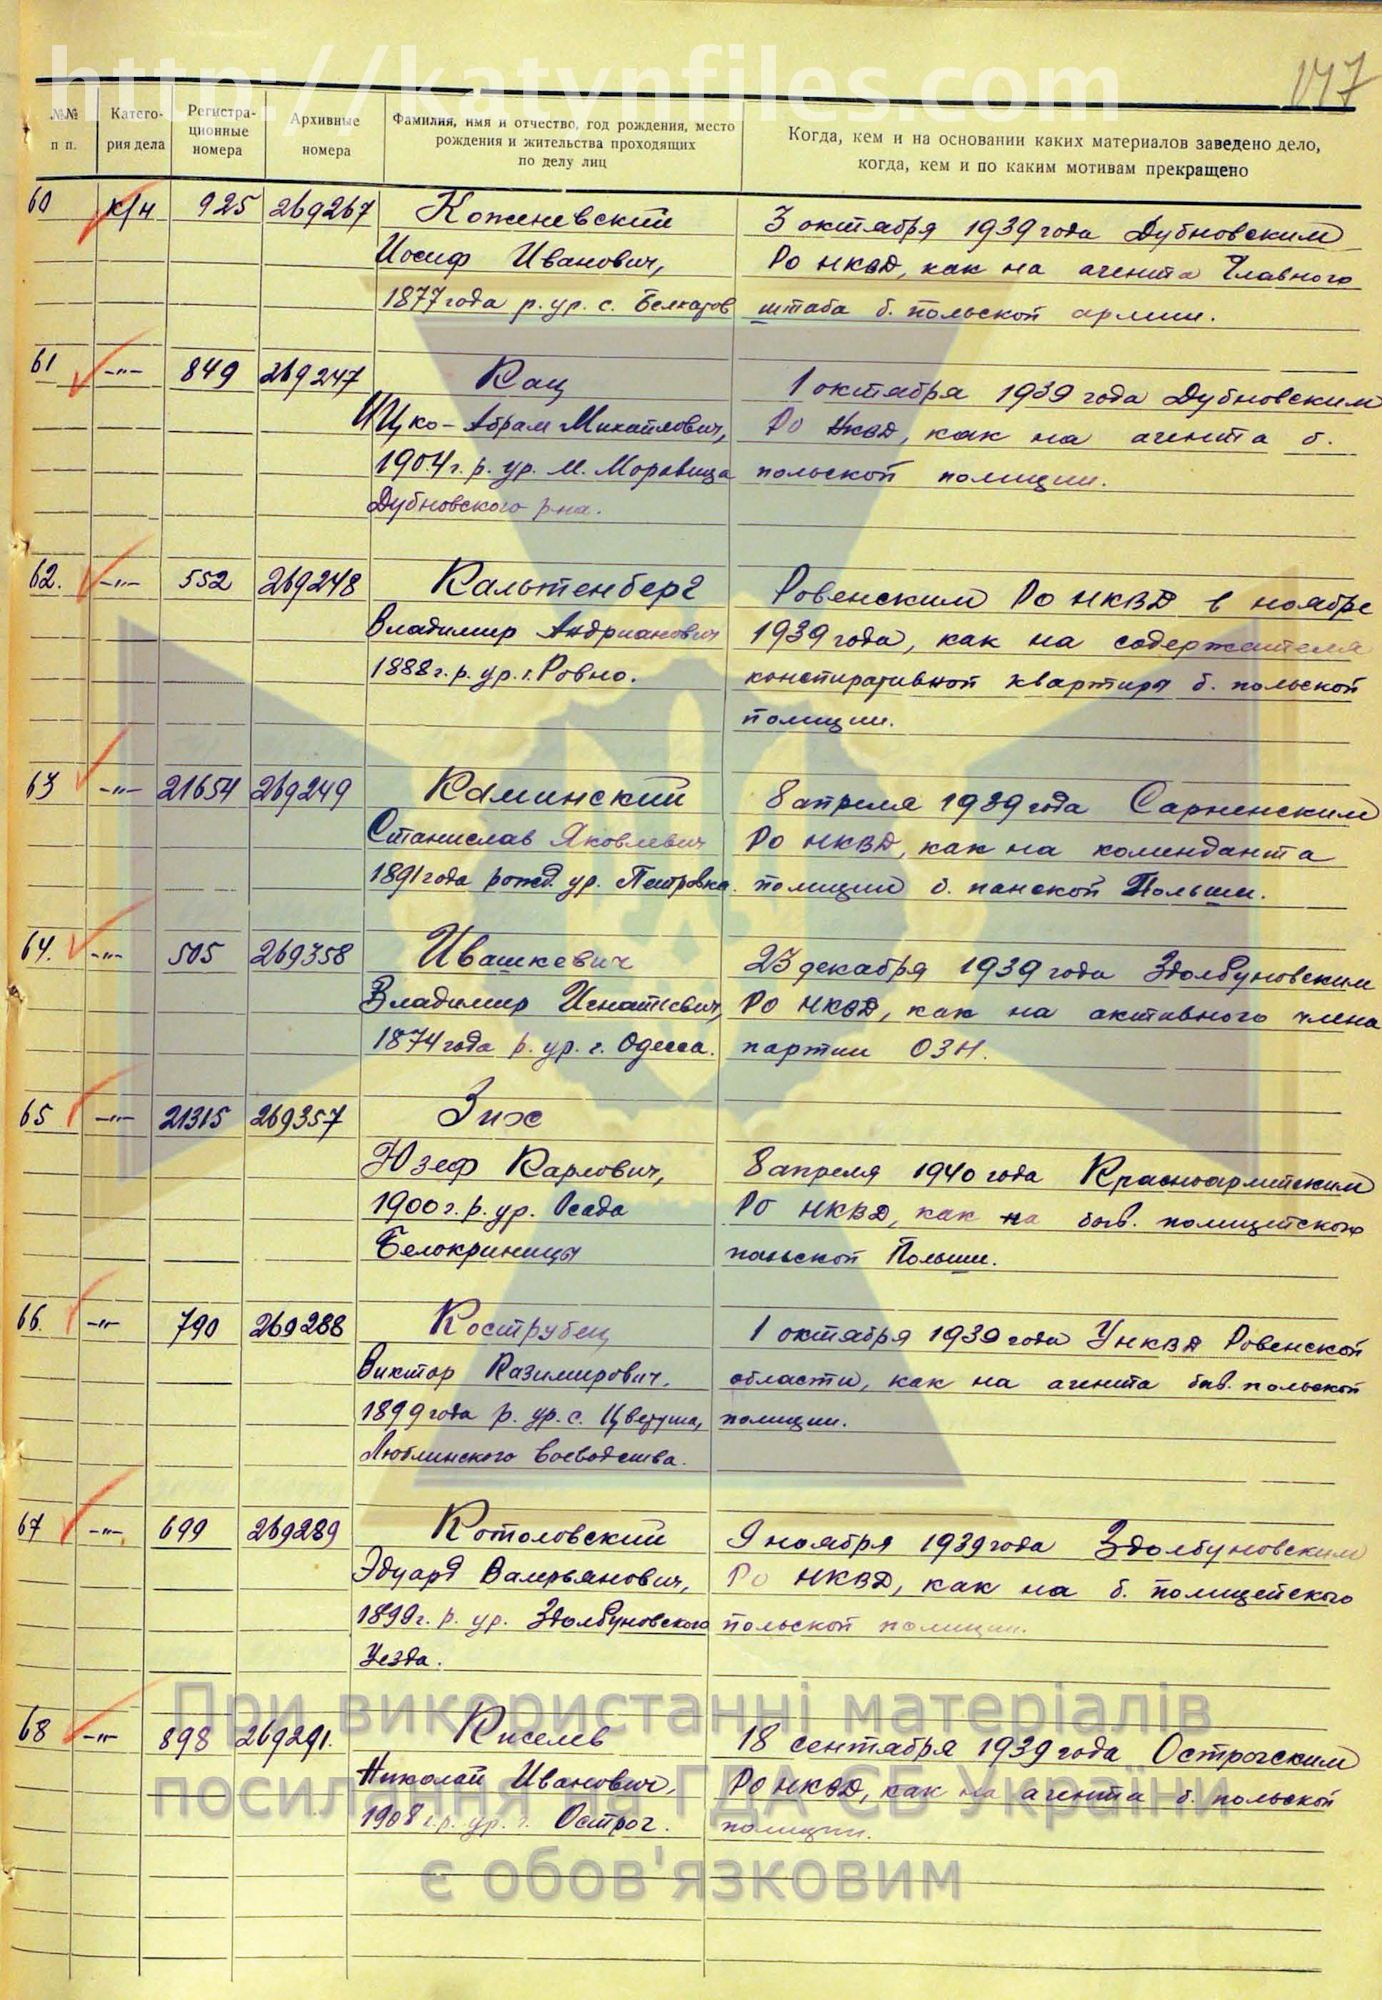 http://katynfiles.com
147
№№ п п.
Катего-
рия дела
Регистра-
ционные
номера
Архивные
номера
Фамилия, имя и отчество, год рождения, место
рождения и жительства проходящих
по делу лиц
Когда, кем и на основании каких материалов заведено дело,
когда, кем и по каким мотивам прекращено
60 к/н 925 269267 Коженевский 3 октября 1939 года Дубновским
Иосиф Иванович, РО НКВД, как на агента Главного
1877 года р. ур. с. штаба б. польской армии.
61 -"- 849 269247 Кац 1 октября 1939 года Дубновским
Ицко-Абрам Михайлович, РО НКВД, как на агента б.
1904 г. р. ур. м. Моравица польской полиции.
Дубновского р-на.
62. -"- 552 269248 Кальтенберг Ровенским РО НКВД в ноябре
Владимир Андрианович 1939 года, как на содержателя
1888 г. р. ур. г. Ровно. конспиративной квартиры б. польской
полиции.
63 -"- 21654 269249 Каминский 8 апреля 1939 года Сарненским
Станислав Яковлевич РО НКВД, как на коменданта
1891 года рожд. ур. Петровка. полиции б. панской Польши.
64. -"- 505 269358 Ивашкевич 23 декабря 1939 года Здолбуновским
Владимир Игнатьевич, РО НКВД, как на активного члена
1874 года р. ур. г. Одесса. партии ОЗН.
65 -"- 21315 269357 Зих
Юзеф Карлович, 8 апреля 1940 года Красноармейским
1900 г. р. ур. Осада РО НКВД, как на быв. полицейского
Белокриницы Польши.
66. -"- 790 269288 Кострубец 1 октября 1939 года УНКВД Ровенской
Виктор Казимирович, области, как на агента быв. польской
1899 года р. ур. с. полиции.
Люблинского воеводства.
67 -"- 699 269289 Котоловский 9 ноября 1939 года Здолбуновским
Эдуард Валерьянович, РО НКВД, как на б. полицейского
1899 г. р. ур. Здолбуновского польской полиции.
уезда.
68 -"- 898 269291. Киселев 18 сентября 1939 года Острогским
Николай Иванович, РО НКВД, как на агента б. польской
1908 г. р. ур. г. Острог. полиции.
При використанні матеріалів
посилання на ГДА СБ України
є обов'язковим